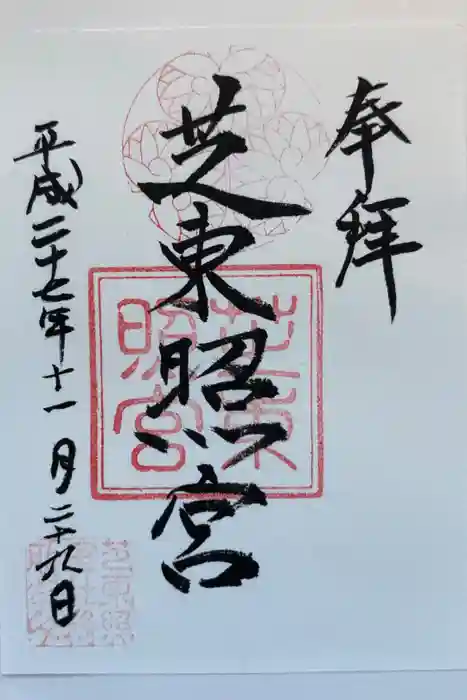 奉拝
芝東照宮
平成二十七年十一月二十九日
芝東照宮